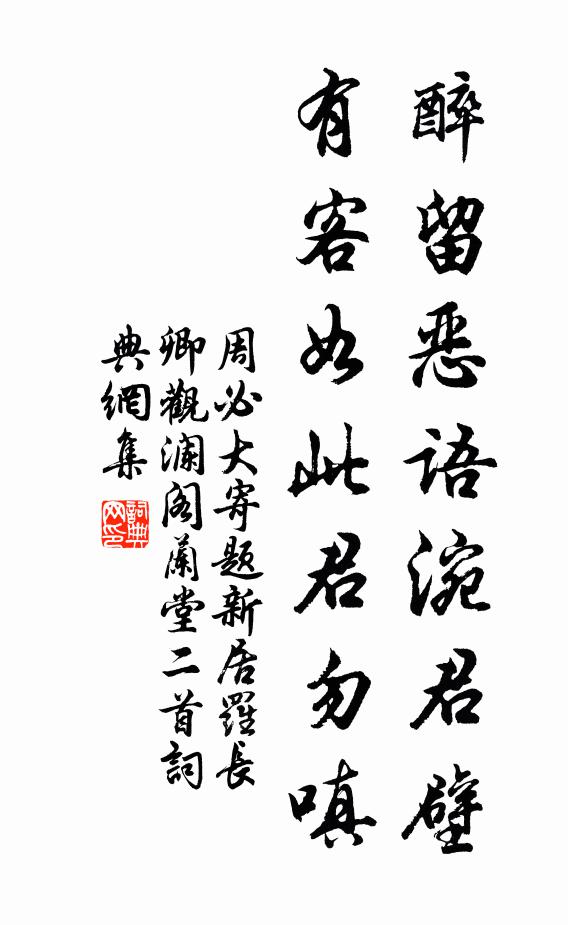 醉留恶語涴君壁
有客如此君勿嗔
周必大寄題新居羅長
卿觀瀾閣蘭堂二首詞
典網集
詞典
网印